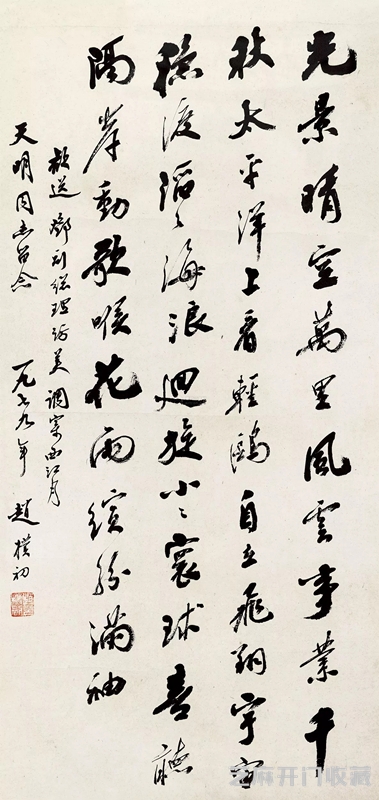 光景晴空萬里風雲事業千
秋太平洋上看輕鷗自在飛翔宇宙
穩渡滔〻海浪迴旋小〻寰球喜聽
隔岸動歌喉花雨缤紛滿袖
敬送鄧副總理訪美 調寄西江月
天明同志留念 一九七九年 趙樸初
芝麻开门收藏